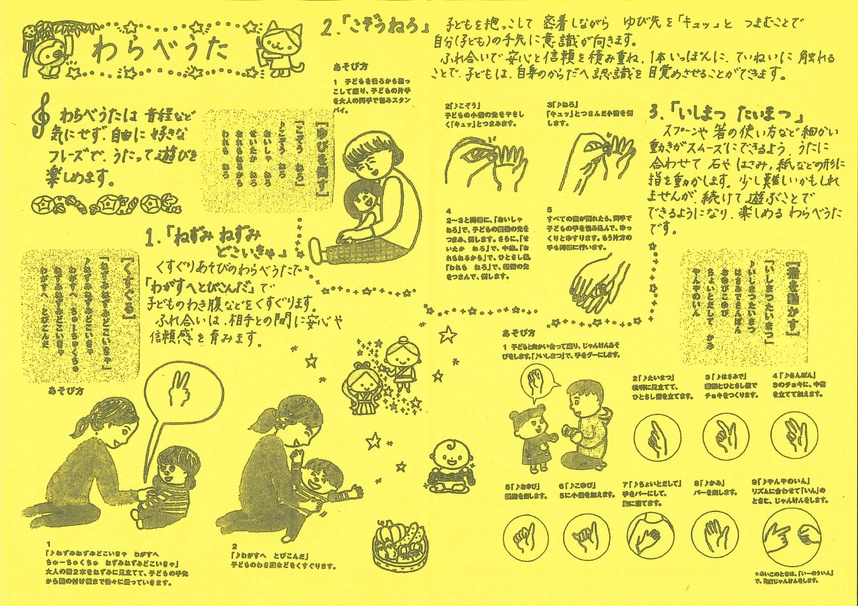 わらべうた
わらべうたは 音程など
気にせず、自由に 好きな
フレーズで、うたって遊びを
楽しめます。
1.「ねずみ ねずみ
どこいきゃ」
くすぐりあそびのわらべうたで
「わがすへとびこんだ」で
子どものわき腹などをくすぐります。
ふれ合いは、相手との間に安心や
信頼感を育みます。
[くすぐる]
「ねずみねずみどこいきゃ」
♪ねずみねずみどこいきゃ
わがすへ ちゅーちゅくちゅ
ねずみねずみどこいきゃ
わがすへ とびこんだ
あそび方
1
「♪ねずみねずみどこいきゃ わがすへ
ちゅーちゅくちゅ ねずみねずみどこいきゃ」
大人の指2本をねずみに見立てて、子どもの手先
から腕の付け根まで徐々に登っていきます。
2
「♪わがすへ とびこんだ」
子どものわき腹などをくすぐります。
2.「こぞうねろ」
子どもを抱っこして 密着しながら ゆび先を「キュッ」と つまむことで
自分(子ども)の手先に意識が向きます。
ふれ合いで安心と信頼を積み重ね、1本いっぽんに、ていねいに 触れる
ことで、子どもは、自身のからだへ認識を目覚めさせることができます。
[ゆびを触す]
「こぞう ねろ」
♪こぞう ねろ
おいしゃ ねろ
せいたか ねろ
われも ねろ
あそび方
1 子どもを後ろから抱っ
こして座り、子どもの片手
を大人の両手で包みスタン
バイ。
2「♪こぞう」
子どもの小指の先をやさし
く「キュッ」とつまみます。
3「♪ねろ」
「キュッ」とつまんだ小指を倒
します。
4
2〜3と同様に、「おいしゃ
ねろ」で、子どもの薬指の先を
つまみ、倒します。さらに、「せ
いたか ねろ」で、中指、「お
れもねるから」で、ひとさし指、
「われも ねろ」で、親指の先
をつまんで、倒します。
5
すべての指が倒れたら、両手で
子どもの手を包み込んで、ゆっ
くりとゆすります。もう片方の
手も同様に行います。
3.「いしまつ たいまつ」
スプーンや 箸の使い方など 細かい
動きがスムーズにできるよう、うたに
合わせて 石や はさみ、紙などの形に
指を動かします。少し難しいかもしれ
ませんが、続けて遊ぶことで
できるようになり、楽しめる わらべうた
です。
[指を動かす]
「いしまつたいまつ」
♪いしまつたいまつ
はさみでさんぽん
おゆびこゆび
ちょいとだして かみ
やんやのいん
あそび方
1 子どもと向かい合って座り、じゃんけんあそ
びをします。「♪いしまつ」で、手をグーにします。
2「♪たいまつ」
松明に見立てて、
ひとさし指を立てます。
3「♪はさみで」
親指とひとさし指で
チョキをつくります。
4「♪さんぼん」
3のチョキに、中指
を立てて加えます。
5「♪おゆび」
親指を出します。
6「♪こゆび」
5に小指を加えます。
7「♪ちょいとだして」
手をパーにして、
胸に当てます。
8「♪かみ」
パーを出します。
9「♪やんやのいん」
リズムに合わせて「いん」の
ときに、じゃんけんをします。
*あいこのときは、「いーのういん」
で、再度じゃんけんをします。